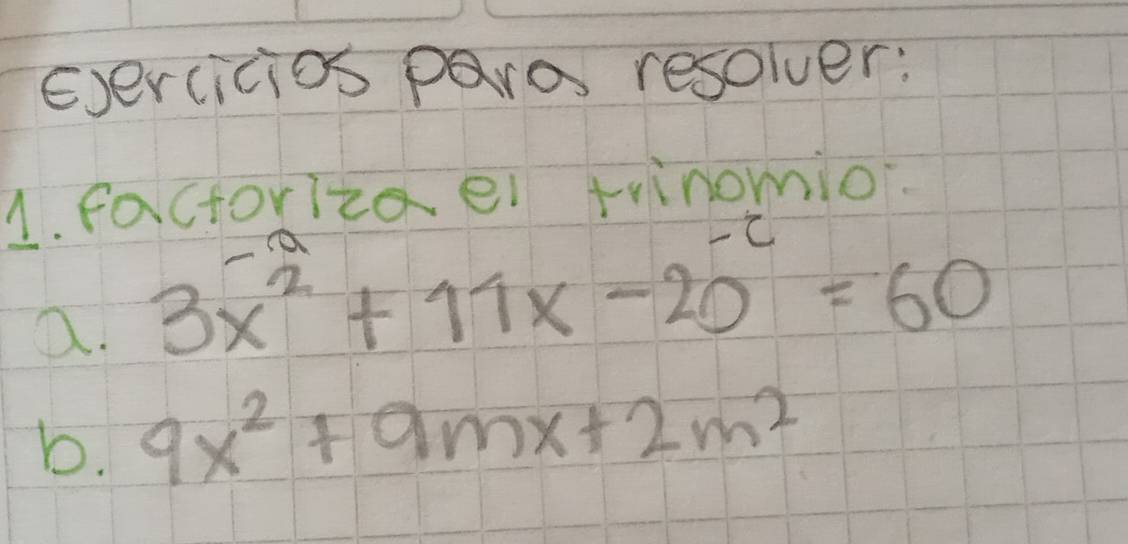 Ejercicios para resolver:
1. factoriza el trinomio:
-a -c
a. 3x² + 11x - 20 = 60
b. 9x² + 9mx + 2m²